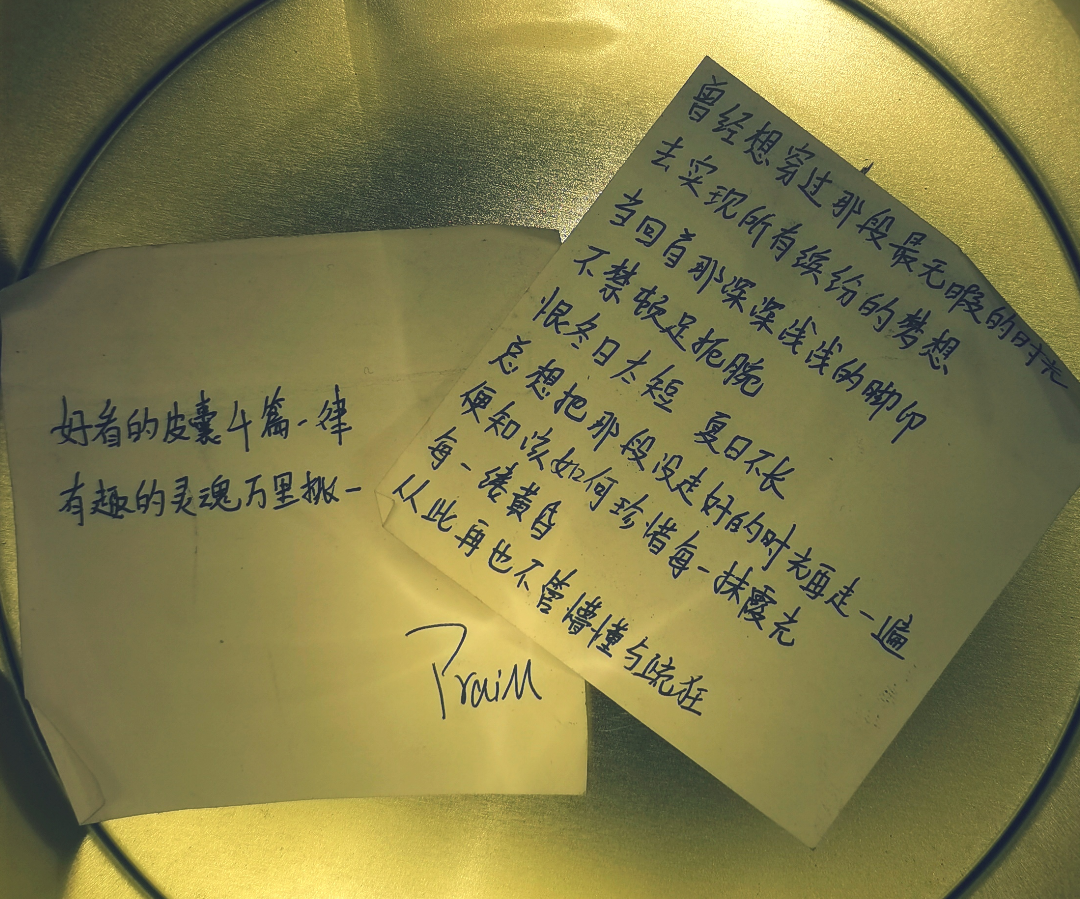 好看的皮囊千篇一律
有趣的灵魂万里挑一
曾经想穿过那段最无暇的时光
去实现所有缤纷的梦想
当回首那深深浅浅的脚印
不禁顿足扼腕
恨冬日太短 夏日不长
总想把那段没走好的时光再走一遍
便知该如何珍惜每一抹霞光
每一缕黄昏
从此再也不管懵懂与疏狂